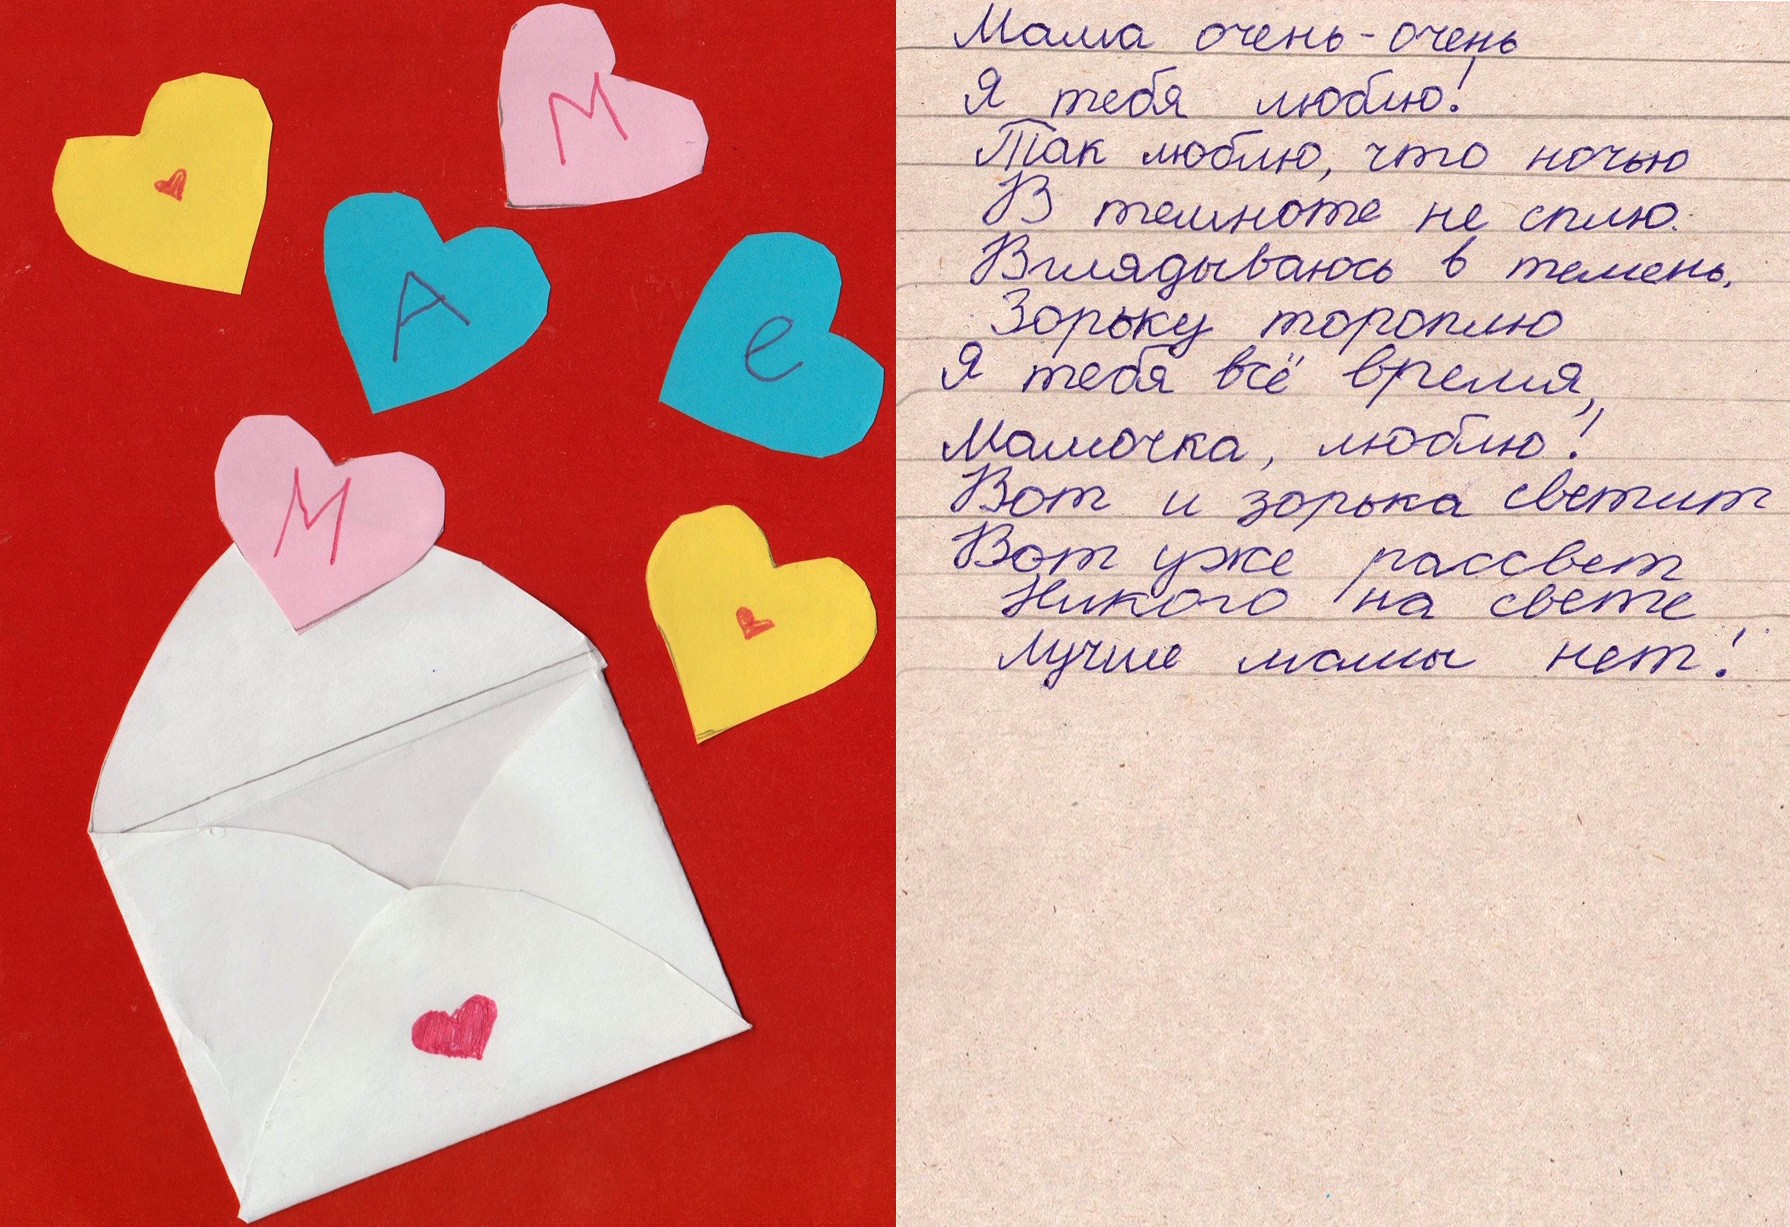 М
А
М
е
Мама очень-очень
Я тебя люблю!
Так люблю, что ночью
В темноте не сплю.
Вглядываюсь в темень,
Зорьку тороплю
Я тебя всё время,
Мамочка, люблю!
Вот и зорька светит
Вот уже рассвет
Никого на свете
Лучше мамы нет!